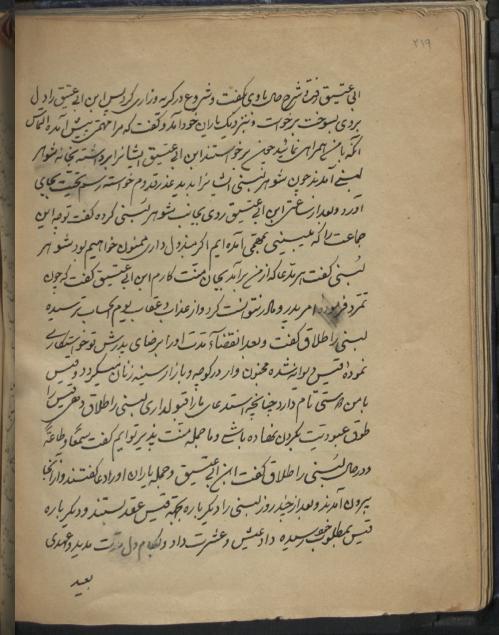 ۲۱۹
ابی عتیق رفته شرح حال با وی بگفت و شروع در گریه و زاری کرد پس ابن ابی عتیق را دل
بر وی بسوخت برخاست و بنزدیک یاران خود آمد و گفت که مرا مهمی پیش آمده التماس
آنکه با من همراهی نمایید جمیع برخواستند ابن ابی عتیق ایشانرا برداشته بخانه شوهر
لبنی آمدند چون شوهر لبنی ایشانرا بدید عذر قدوم خواسته رسم تحیت بجای
آورد و بعد از ساعتی ابن ابی عتیق روی بجانب شوهر لبنی کرده گفت بوجه این
جماعت را که میبینی بمهمی آمده ایم اگر مبذول داری ممنون خواهیم بود شوهر
لبنی گفت هر مدعا که از من برآید بجان منت دارم ابن ابی عتیق گفت که چون
تمرد فرموده امر پدر و مادر نتوانست کرد و از عذاب و عقاب یوم الحساب ترسیده
لبنی را طلاق گفت و بعد انقضاء مدت او را برضای پدرش تو خواستگاری
نموده قیس دیوانه شده مجنون وار در کوچه و بازار سینه زنان میگردد و قیس
با من دوستی تمام دارد چنانچه استدعای ما را قبول داری لبنی را طلاق دهی قیس را
طوق عبودیت بگردن نهاده باشی و ما جمله منت پذیر توایم گفت سمعا و طاعة
و در حال لبنی را طلاق گفت ابن ابی عتیق و جمله یاران او را دعا گفتند و از آنجا
بیرون آمدند و بعد از چند روز لبنی را دیگرباره بجهة قیس عقد بستند و دیگرباره
قیس بمطلوب خود رسیده داد عیش و عشرت داد و بکام دل مدت مدید و عهدی
بعید